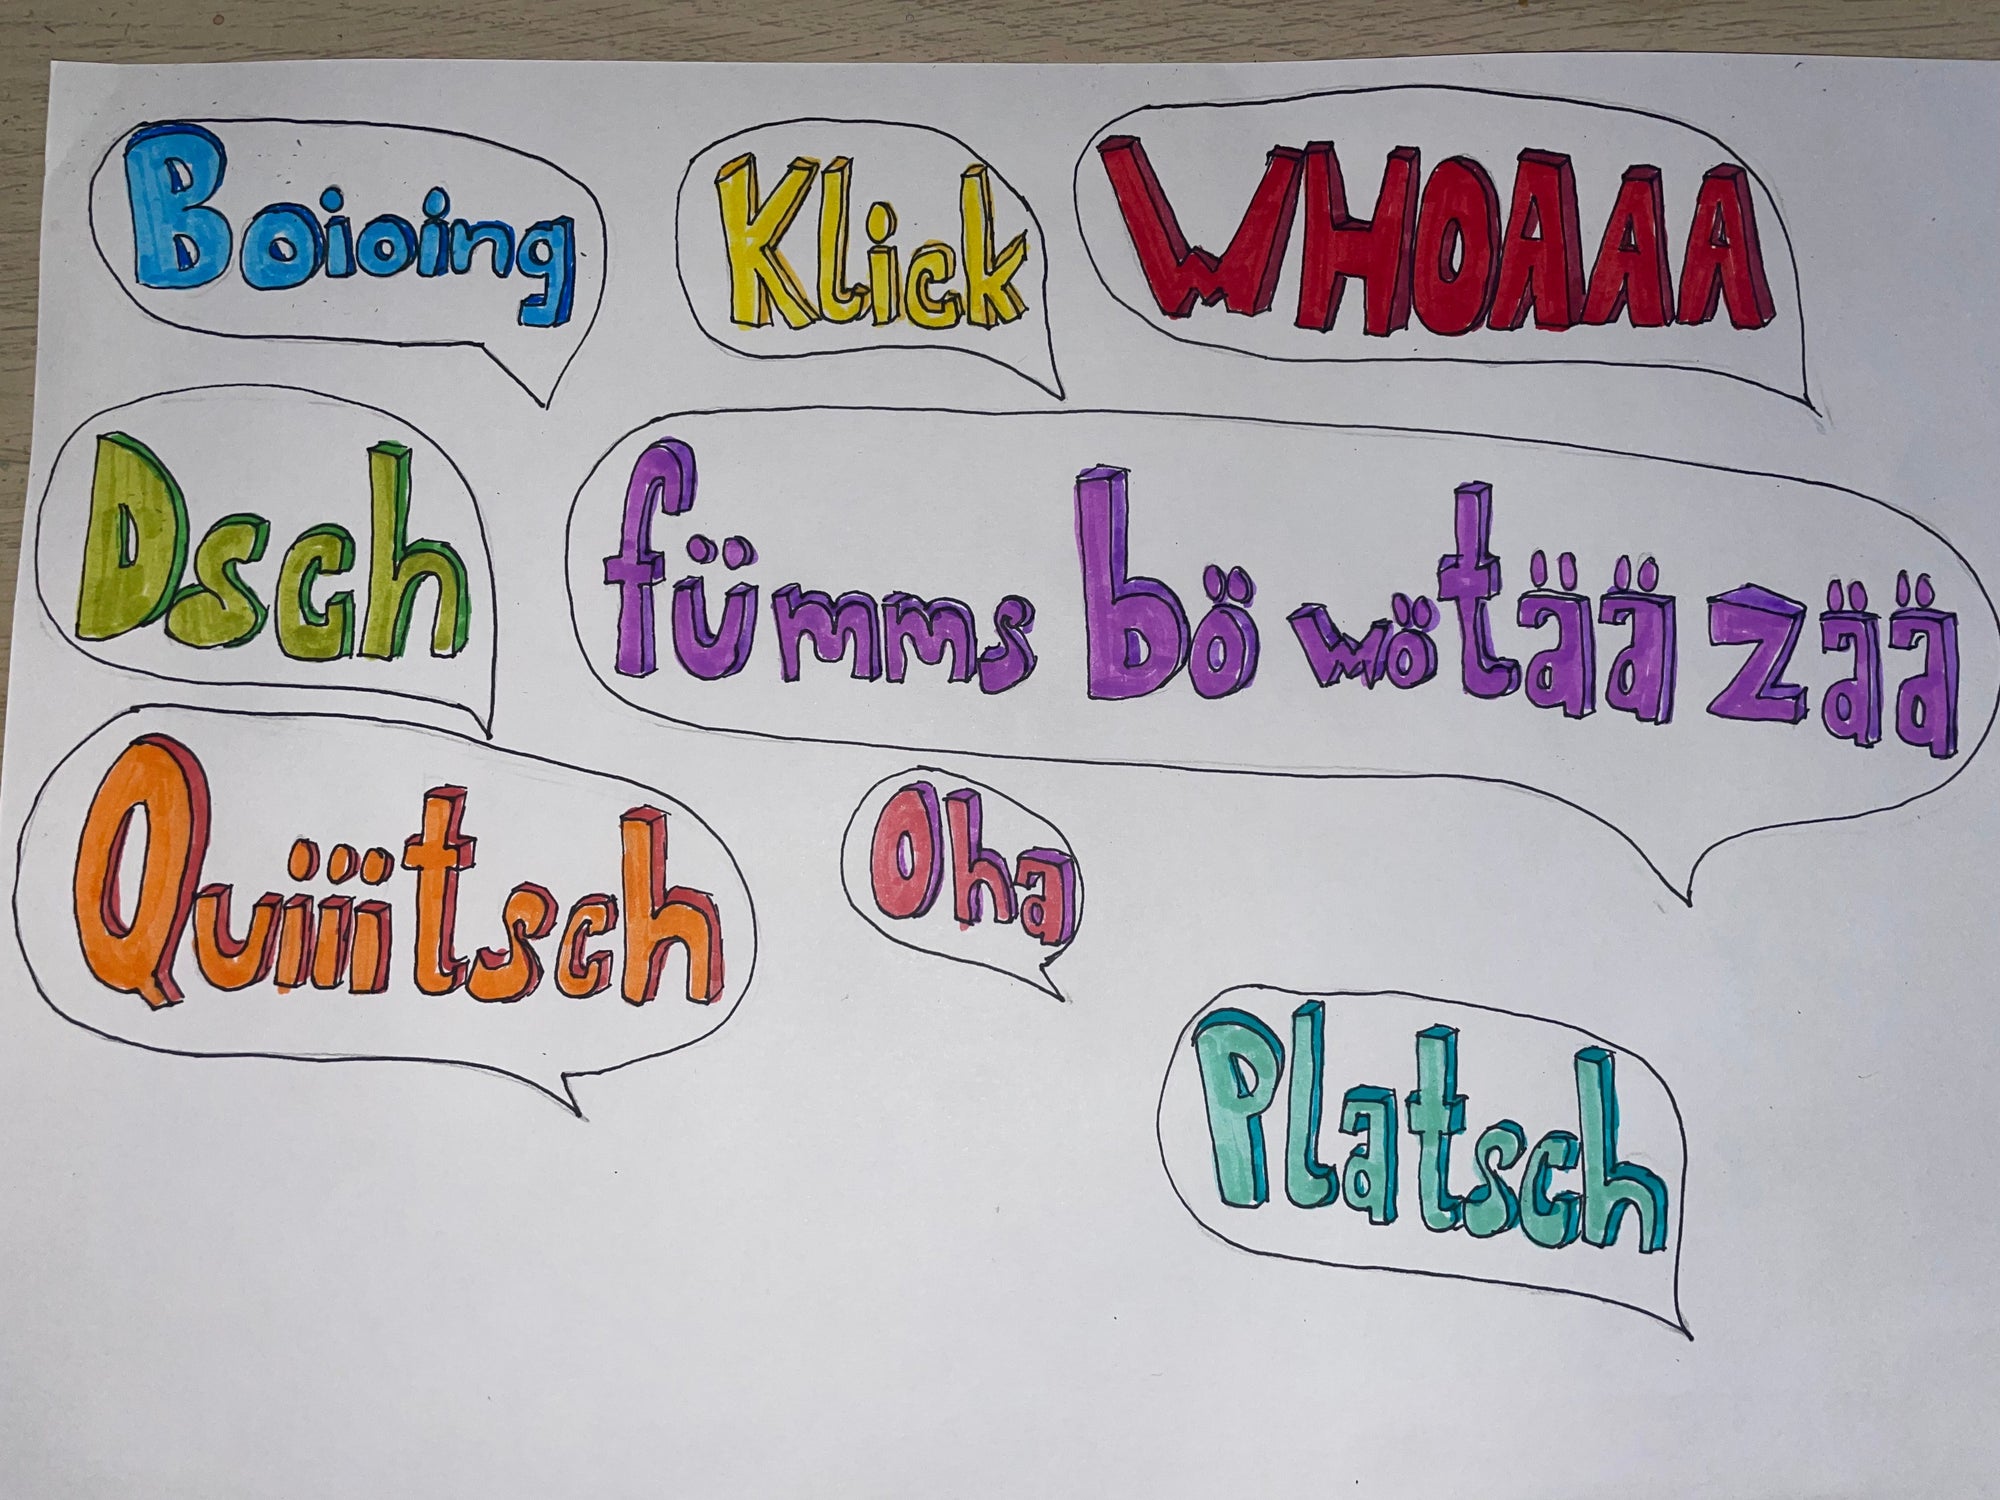 Boioing
Klick
WHOAAA
Dsch
fümms bö wötää zää
Quiiitsch
Oha
Platsch